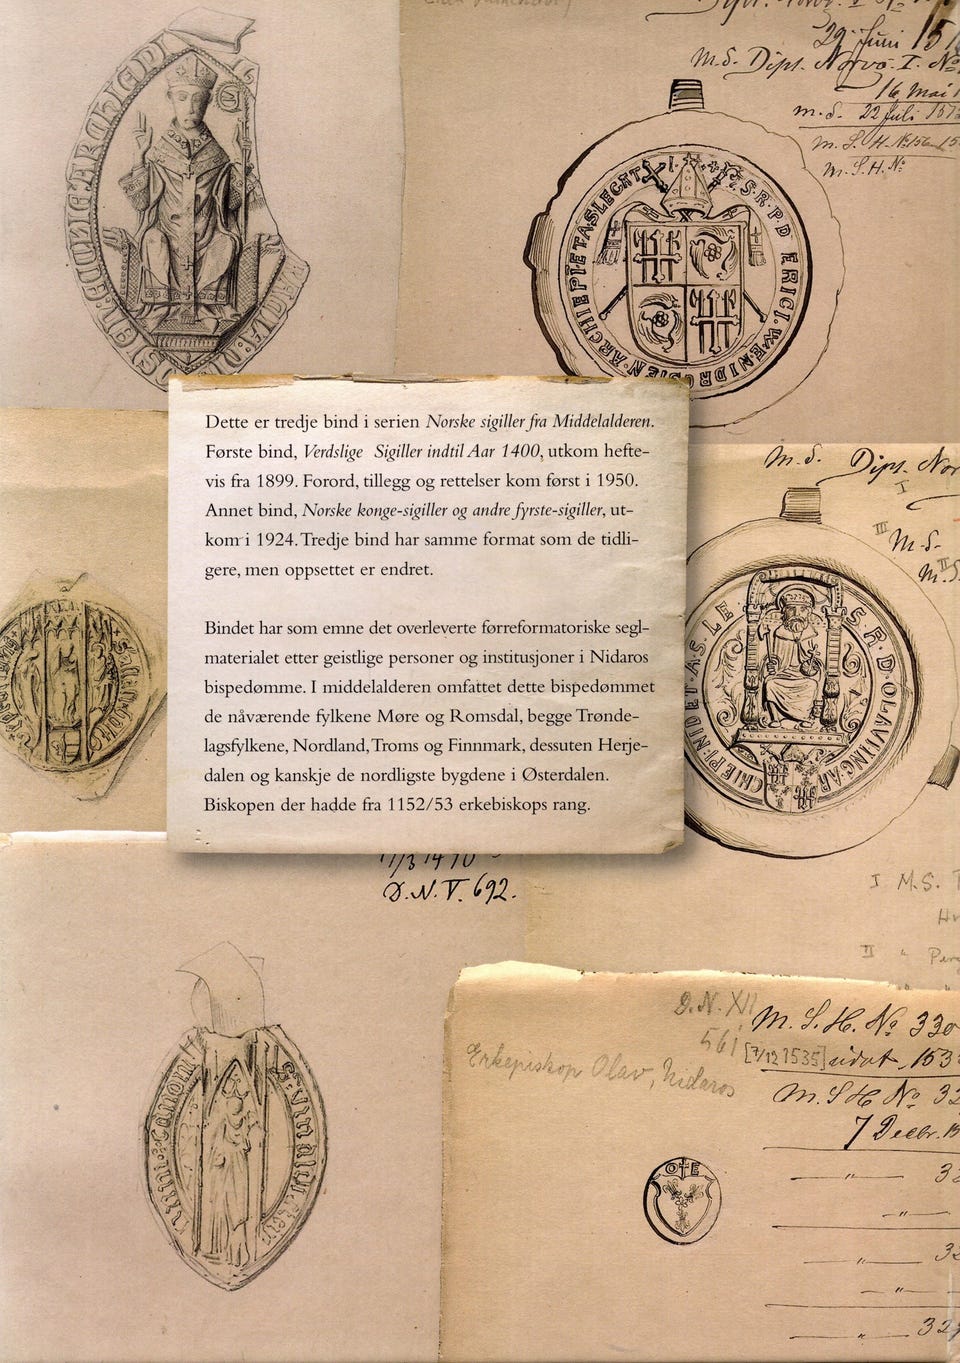 29 Juni 15
M.S. Dipl. Norvo. I. No
16 Mai 1
M.S. 22 Juli 157
M.S.H. No 156 15
M.S.H. No
S.R.P.D ERICI.W.E.NIDROSIEN.ARCHIEPI
Dette er tredje bind i serien Norske sigiller fra Middelalderen.
Første bind, Verdslige Sigiller indtil Aar 1400, utkom hefte-
vis fra 1899. Forord, tillegg og rettelser kom først i 1950.
Annet bind, Norske konge-sigiller og andre fyrste-sigiller, ut-
kom i 1924. Tredje bind har samme format som de tidli-
gere, men oppsettet er endret.
Bindet har som emne det overleverte førreformatoriske segl-
materialet etter geistlige personer og institusjoner i Nidaros
bispedømme. I middelalderen omfattet dette bispedømmet
de nåværende fylkene Møre og Romsdal, begge Trønde-
lagsfylkene, Nordland, Troms og Finnmark, dessuten Herje-
dalen og kanskje de nordligste bygdene i Østerdalen.
Biskopen der hadde fra 1152/53 erkebiskops rang.
M.S. Dipl. Nor
I
III M.S.
II M.S.
S.R.D.OLAVI
D.N.V. 692.
I M.S.
II " Perg
D.N. XII
561
M.S.H. No 330
[7/12 1535] udat. 153
Erkepiskop Olav, Nidaros
M.S H No 32
7 Decbr. 15
" 32
"
" 32
"
" 32
O E